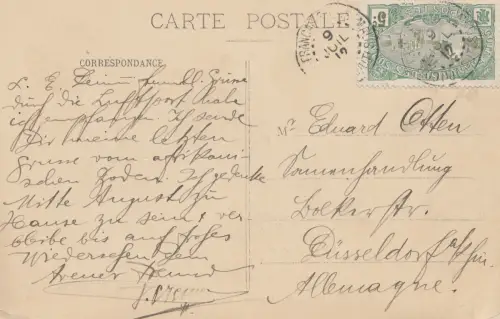 CARTE POSTALE
CORRESPONDANCE
9
JUIL
12
5
L. E. Deine freundl. Grüsse
durch die Luftpost habe
ich empfangen. Ich sende
Dir meine letzten
Grüsse vom afrikani-
schen Boden. Ich gedenke
Mitte August zu
Hause zu sein & ver-
bleibe bis auf frohes
Wiedersehen Dein
treuer Freund
Mr Eduard Otten
Samenhandlung
Bolkerstr.
Düsseldorf a/Rhin.
Allemagne.